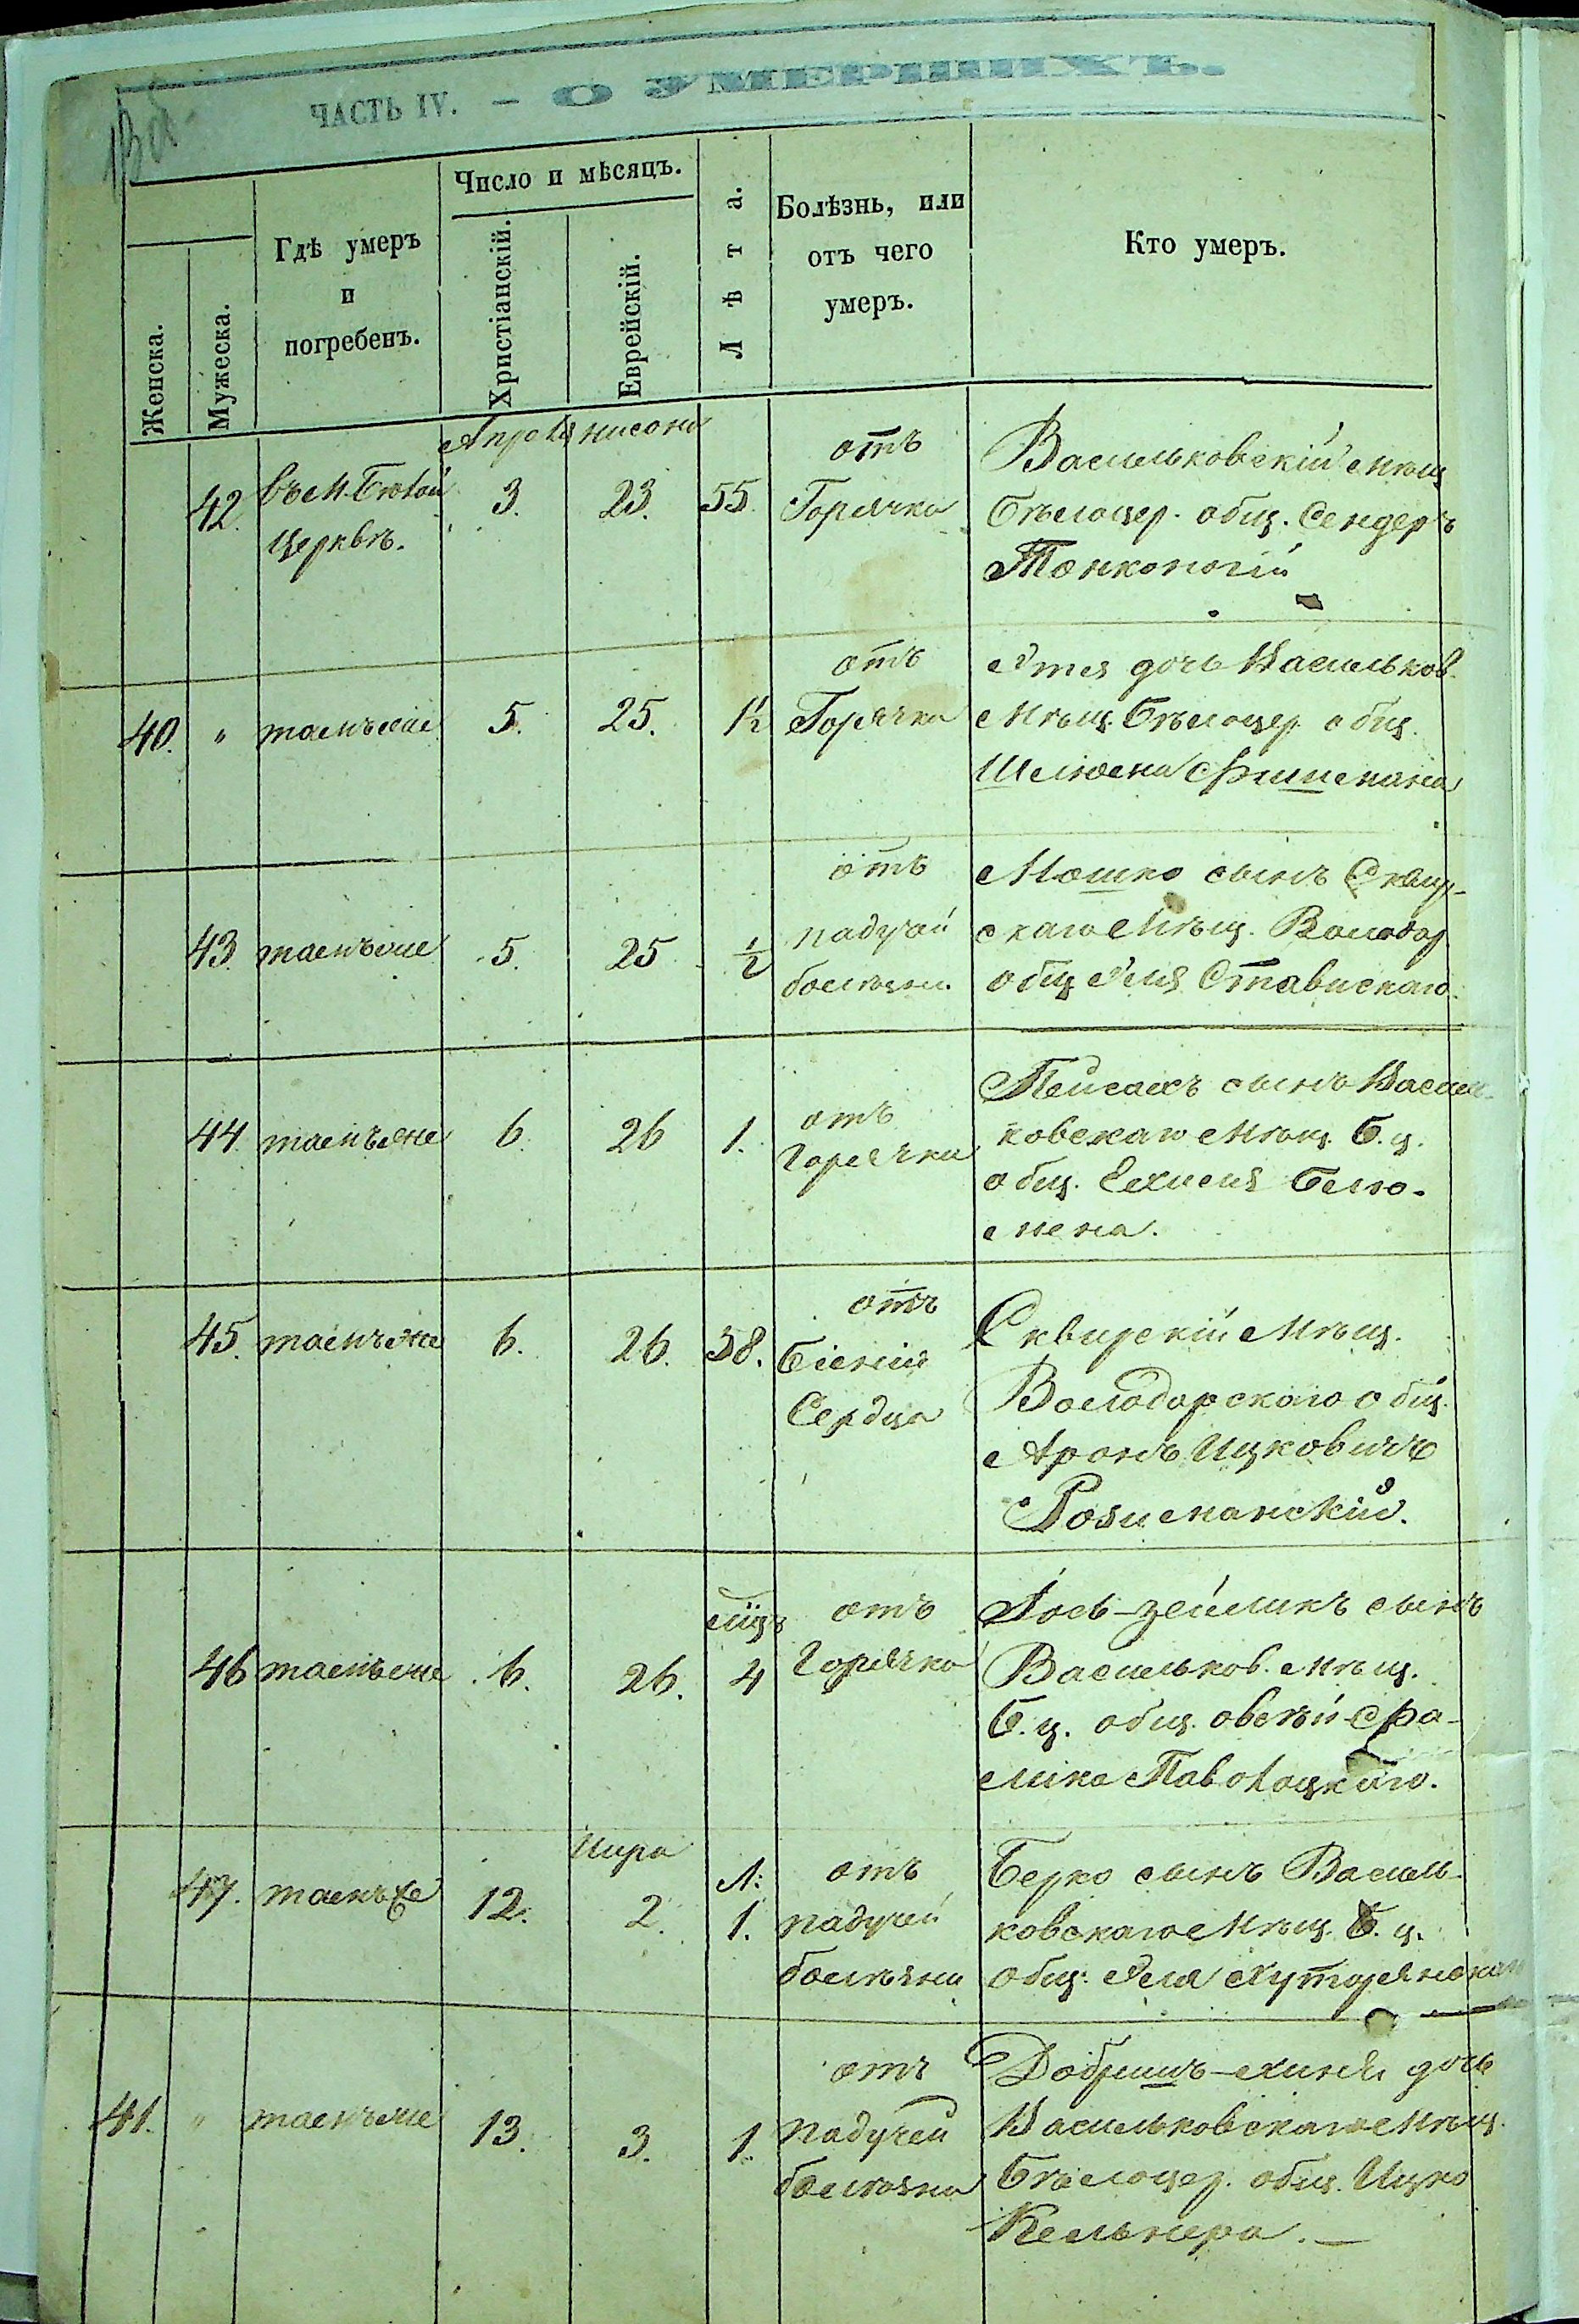 ЧАСТЬ IV. — О УМЕРШИХЪ.
Женска.
Мужеска.
Гдѣ умеръ
и
погребенъ.
Число и мѣсяцъ.
Христіанскій.
Еврейскій.
Лѣта.
Болѣзнь, или
отъ чего
умеръ.
Кто умеръ.
Апреля нисона
42. въ М. Бѣлой 3. 23. 55. отъ
церквѣ. Горячка
Васильковскій Мѣщ.
Бѣлоцер. общ. Сендеръ
Тонконогій
40. " тамъ же 5. 25. 1½ отъ
Горячка
Этля дочь Васильков.
Мѣщ. Бѣлоцер. общ.
Шлюома Фишмана
43. тамъ же 5. 25 ½ отъ
падучей
болѣзни
Мошко сынъ Сквир-
скаго Мѣщ. Володар.
общ. Эля Ставискаго.
44. тамъ же 6. 26 1. отъ
Горячки
Пейсахъ сынъ Василь-
ковскаго Мѣщ. Б. ц.
общ. Ехиеля
45. тамъ же 6. 26. 58. отъ
Біенія
Сердца
Сквирскій Мѣщ.
Володарскаго общ.
Аронъ Ицковичъ
46 тамъ же 6. 26. 4 отъ
Горячка
Іось-Зейликъ сынъ
Васильков. Мѣщ.
Б. ц. общ. Овсѣй-Фро-
ика Паволоцкаго.
Иира
47. тамъ же 12. 2. Л: 1. отъ
падучей
болѣзни
Берко сынъ Василь-
ковскаго Мѣщ. Б. ц.
общ. Эля Хуторянскаго
41. " тамъ же 13. 3. 1. отъ
падучей
болѣзни
Добришъ-Хиня дочь
Васильковскаго Мѣщ.
Бѣлоцер. общ. Ицко
Кельнера. —